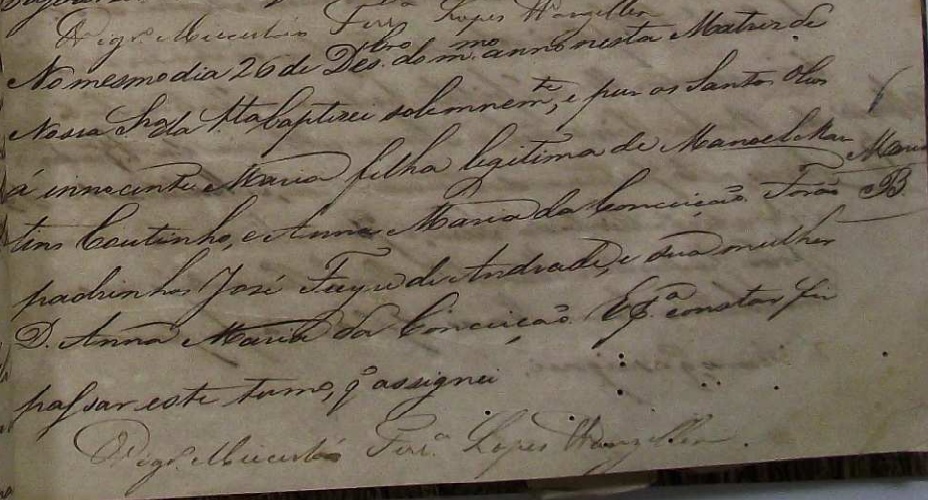 Vigr.º Ferr.ª Lopes Wanzeller
No mesmo dia 26 de Dez.bro do m.mo anno nesta Matriz de
Nossa Sn.ra da baptizei solemnem.te, e puz os Santos Olios
á innocente Maria filha legitima de Manoel Mar
Maria
tins Coutinho, e Anna Maria da Conceição. Forão
B.
padrinhos José de Andrade, e sua mulher
D. Anna Maria da Conceição. E p.ª constar fiz
passar este termo, q' assignei
Vigr.º Ferr.ª Lopes Wanzeller.